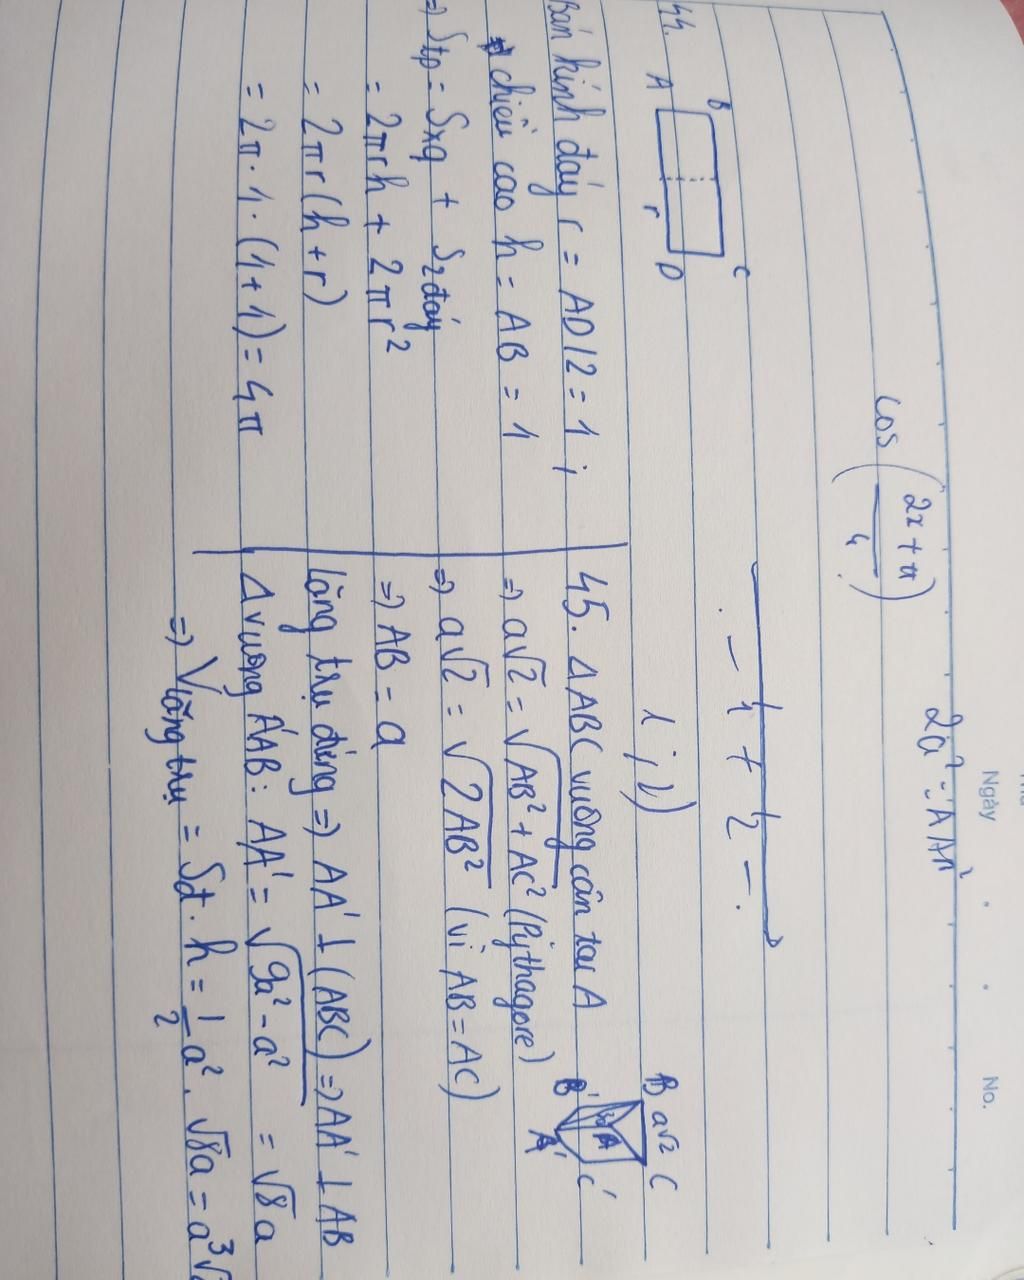 Ngày
No.
2a² = AA'²
cos (2x + π / 4)
- 1 + 2 -
1 ; 2)
44.
B
C
A
r
D
Bán kính đáy r = AD/2 = 1 ;
chiều cao h = AB = 1
⇒ Stp = Sxq + S2đáy
= 2πrh + 2πr²
= 2πr(h + r)
= 2π . 1 . (1 + 1) = 4π
B a√2 C
A
B'
A'
C'
45. ΔABC vuông cân tại A
⇒ a√2 = √AB² + AC² (Pythagore)
⇒ a√2 = √2AB² (vì AB = AC)
⇒ AB = a
lăng trụ đứng ⇒ AA' ⊥ (ABC) ⇒ AA' ⊥ AB
Δvuông A'AB : AA' = √9a² - a² = √8a
⇒ Vlăng trụ = Sđ . h = 1/2 a² . √8a = a³√2